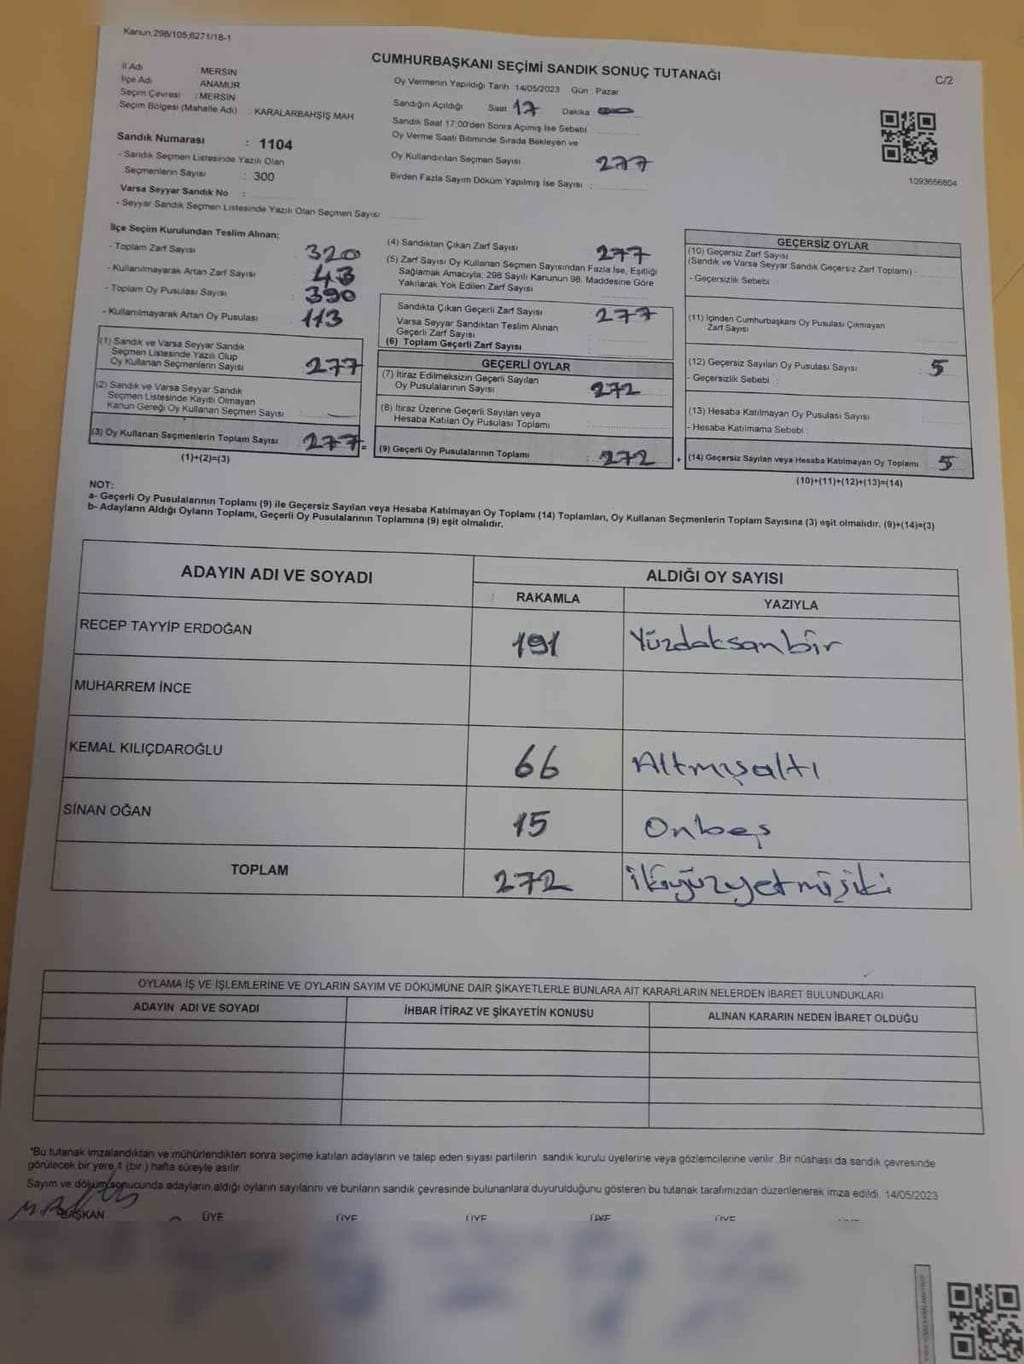 Kanun.298/105,6271/18-1
CUMHURBAŞKANI SEÇİMİ SANDIK SONUÇ TUTANAĞI
C/2
İl Adı MERSİN
İlçe Adı ANAMUR
Seçim Çevresi : MERSİN
Seçim Bölgesi (Mahalle Adı) : KARALARBAHŞIŞ MAH
Sandık Numarası : 1104
- Sandık Seçmen Listesinde Yazılı Olan
Seçmenlerin Sayısı : 300
Varsa Seyyar Sandık No :
- Seyyar Sandık Seçmen Listesinde Yazılı Olan Seçmen Sayısı
Oy Vermenin Yapıldığı Tarih :14/05/2023 Gün : Pazar
Sandığın Açıldığı Saat 17 Dakika
Sandık Saat 17:00'den Sonra Açımış İse Sebebi
Oy Verme Saati Bitiminde Sırada Bekleyen ve
Oy Kullandırılan Seçmen Sayısı 277
Birden Fazla Sayım Döküm Yapılmış İse Sayısı :
1093656804
İlçe Seçim Kurulundan Teslim Alınan;
- Toplam Zarf Sayısı 320
- Kullanılmayarak Artan Zarf Sayısı 43
- Toplam Oy Pusulası Sayısı 390
- Kullanılmayarak Artan Oy Pusulası 113
(1) Sandık ve Varsa Seyyar Sandık
Seçmen Listesinde Yazılı Olup
Oy Kullanan Seçmenlerin Sayısı 277
(2) Sandık ve Varsa Seyyar Sandık
Seçmen Listesinde Kayıtlı Olmayan
Kanun Gereği Oy Kullanan Seçmen Sayısı
(3) Oy Kullanan Seçmenlerin Toplam Sayısı 277 =
(1)+(2)=(3)
(4) Sandıktan Çıkan Zarf Sayısı 277
(5) Zarf Sayısı Oy Kullanan Seçmen Sayısından Fazla İse, Eşitliği
Sağlamak Amacıyla; 298 Sayılı Kanunun 98. Maddesine Göre
Yakılarak Yok Edilen Zarf Sayısı
Sandıkta Çıkan Geçerli Zarf Sayısı 277
Varsa Seyyar Sandıktan Teslim Alınan
Geçerli Zarf Sayısı
(6) Toplam Geçerli Zarf Sayısı
GEÇERLİ OYLAR
(7) İtiraz Edilmeksizin Geçerli Sayılan
Oy Pusulalarının Sayısı 272
(8) İtiraz Üzerine Geçerli Sayılan veya
Hesaba Katılan Oy Pusulası Toplamı
(9) Geçerli Oy Pusulalarının Toplamı 272 +
GEÇERSİZ OYLAR
(10) Geçersiz Zarf Sayısı
(Sandık ve Varsa Seyyar Sandık Geçersiz Zarf Toplamı) :
- Geçersizlik Sebebi
(11) İçinden Cumhurbaşkanı Oy Pusulası Çıkmayan
Zarf Sayısı
(12) Geçersiz Sayılan Oy Pusulası Sayısı 5
- Geçersizlik Sebebi :
(13) Hesaba Katılmayan Oy Pusulası Sayısı
- Hesaba Katılmama Sebebi :
(14) Geçersiz Sayılan veya Hesaba Katılmayan Oy Toplamı 5
(10)+(11)+(12)+(13)=(14)
NOT:
a- Geçerli Oy Pusulalarının Toplamı (9) ile Geçersiz Sayılan veya Hesaba Katılmayan Oy Toplamı (14) Toplamları, Oy Kullanan Seçmenlerin Toplam Sayısına (3) eşit olmalıdır. (9)+(14)=(3)
b- Adayların Aldığı Oyların Toplamı, Geçerli Oy Pusulalarının Toplamına (9) eşit olmalıdır.
ADAYIN ADI VE SOYADI
ALDIĞI OY SAYISI
RAKAMLA YAZIYLA
RECEP TAYYİP ERDOĞAN 191 Yüzdaksanbir
MUHARREM İNCE
KEMAL KILIÇDAROĞLU 66 Altmışaltı
SİNAN OĞAN 15 Onbeş
TOPLAM 272 İkiyüzyetmişiki
OYLAMA İŞ VE İŞLEMLERİNE VE OYLARIN SAYIM VE DÖKÜMÜNE DAİR ŞİKAYETLERLE BUNLARA AİT KARARLARIN NELERDEN İBARET BULUNDUKLARI
ADAYIN ADI VE SOYADI İHBAR İTİRAZ VE ŞİKAYETİN KONUSU ALINAN KARARIN NEDEN İBARET OLDUĞU
*Bu tutanak imzalandıktan ve mühürlendikten sonra seçime katılan adayların ve talep eden siyasi partilerin sandık kurulu üyelerine veya gözlemcilerine verilir. Bir nüshası da sandık çevresinde
görülecek bir yere 1 (bir ) hafta süreyle asılır.
Sayım ve döküm sonucunda adayların aldığı oyların sayılarını ve bunların sandık çevresinde bulunanlara duyurulduğunu gösteren bu tutanak tarafımızdan düzenlenerek imza edildi. 14/05/2023
BAŞKAN ÜYE ÜYE ÜYE ÜYE ÜYE